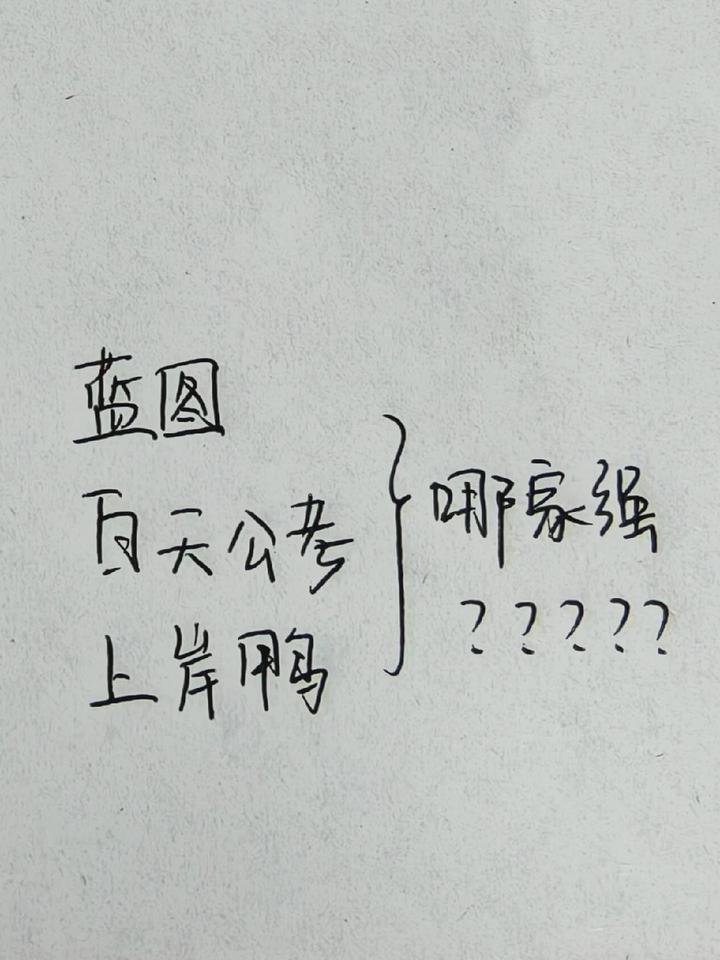 蓝图
百天公考
上岸鸭
哪家强
?????